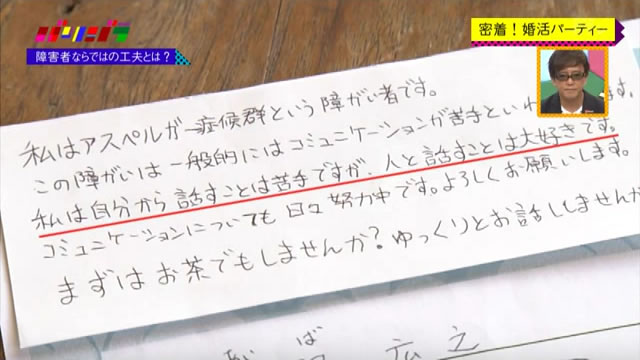 バリバラ
障害者ならではの工夫とは？
密着！婚活パーティー
私はアスペルガー症候群という障がい者です。
この障がいは一般的にはコミュニケーションが苦手といわ
ます。
私は自分から話すことは苦手ですが、人と話すことは大好きです。
コミュニケーションについても日々努力中です。よろしくお願いします。
まずはお茶でもしませんか？ゆっくりとお話ししませんか
ば
広之